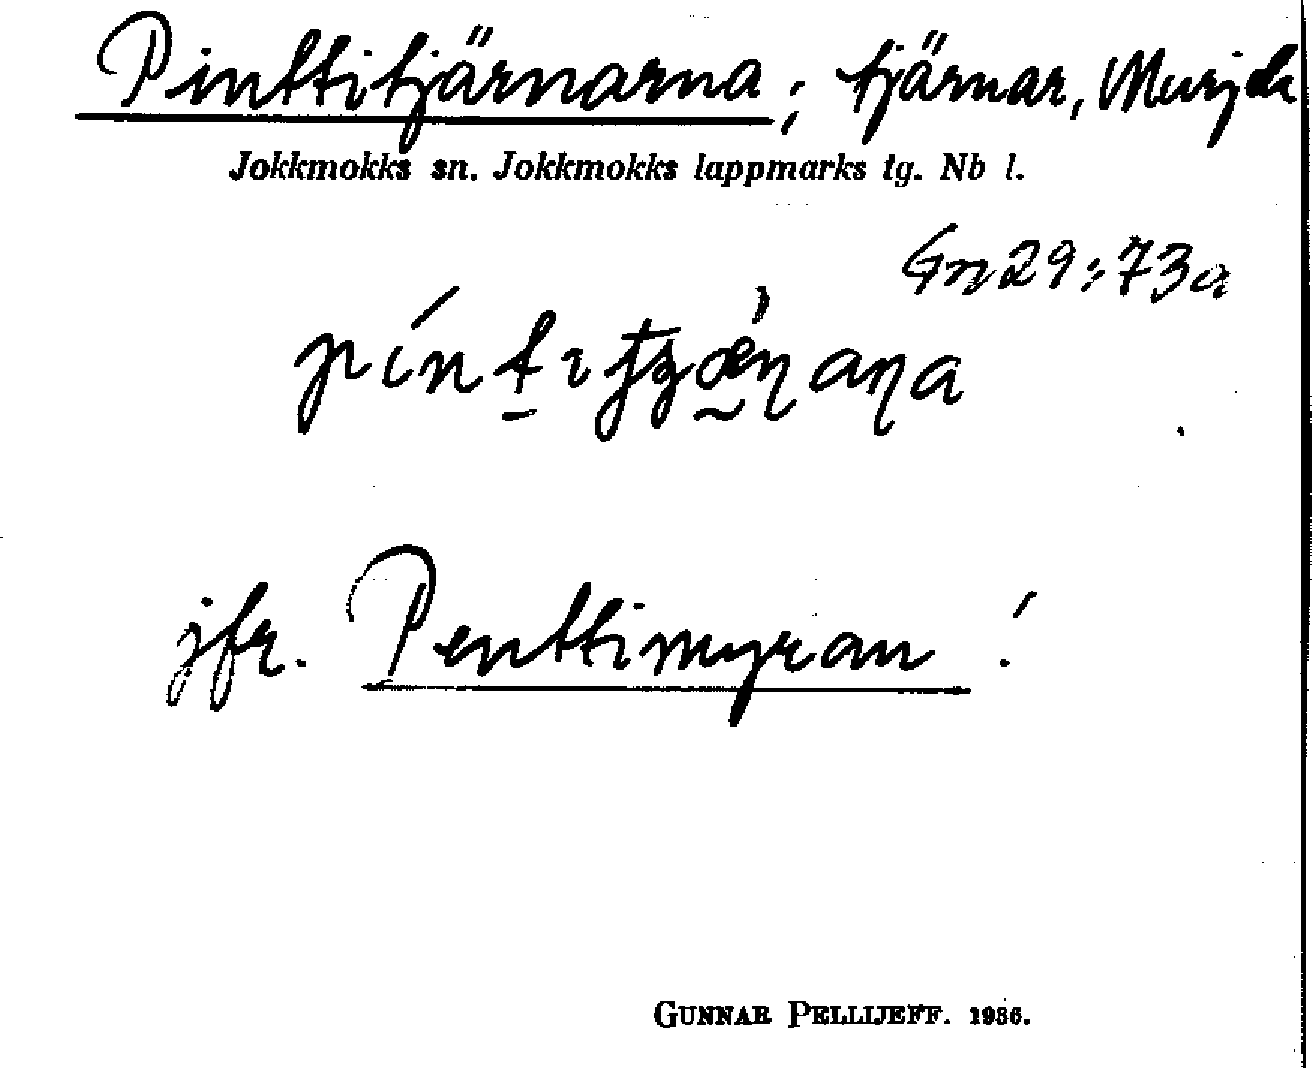 Pinttitjärnarna; tjärnar, Murjek
Jokkmokks sn. Jokkmokks lappmarks tg. Nb l.
Gn 29:73a
jfr. Penttimyran!
GUNNAR PELLIJEFF. 1936.